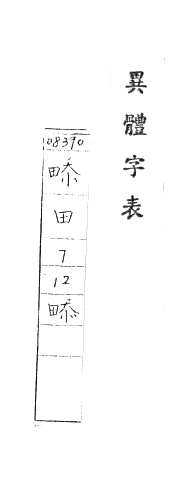 異體字表
08390
田
7
12